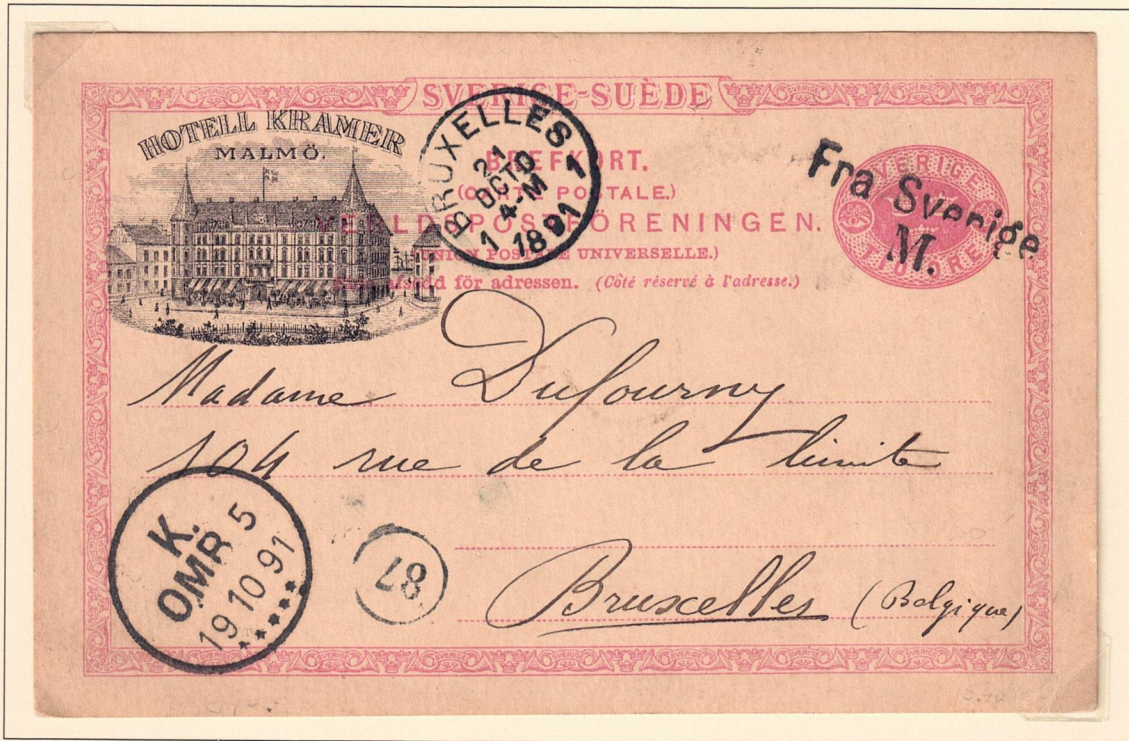 SVERIGE-SUÈDE
HOTELL KRAMER
MALMÖ.
BREFKORT.
(CARTE POSTALE.)
VERLDSPOSTFÖRENINGEN.
(UNION POSTALE UNIVERSELLE.)
för adressen. (Côté réservé à l'adresse.)
BRUXELLES 1
21
OCTO
4-M
1 1891
SVERIGE
TIO ÖRE
Fra Sverige
M.
Madame Dufourny
104 rue de la limite
Bruxelles (Belgique)
K.
OMR 5
19 10 91
87